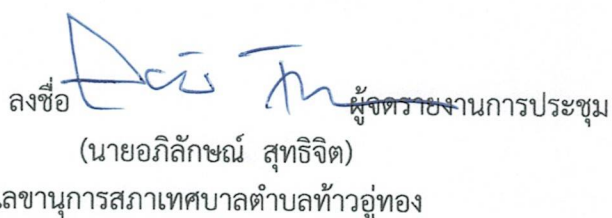 ลงชื่อ ผู้จดรายงานการประชุม
(นายอภิลักษณ์ สุทธิจิต)
เลขานุการสภาเทศบาลตำบลท้าวอู่ทอง